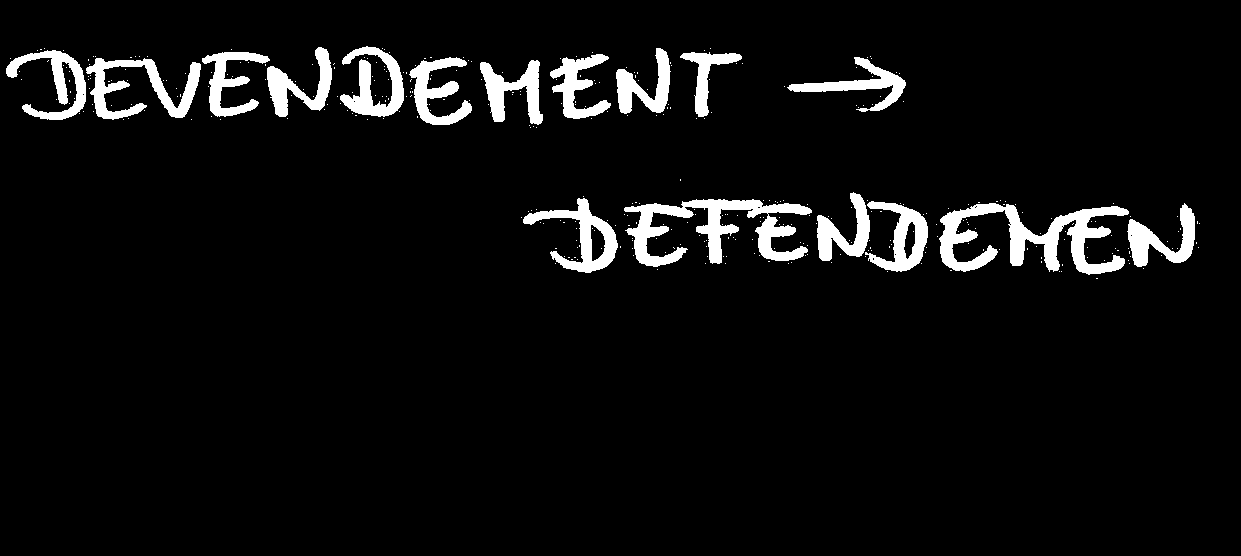 DEVENDEMENT →
DEFENDEMEN